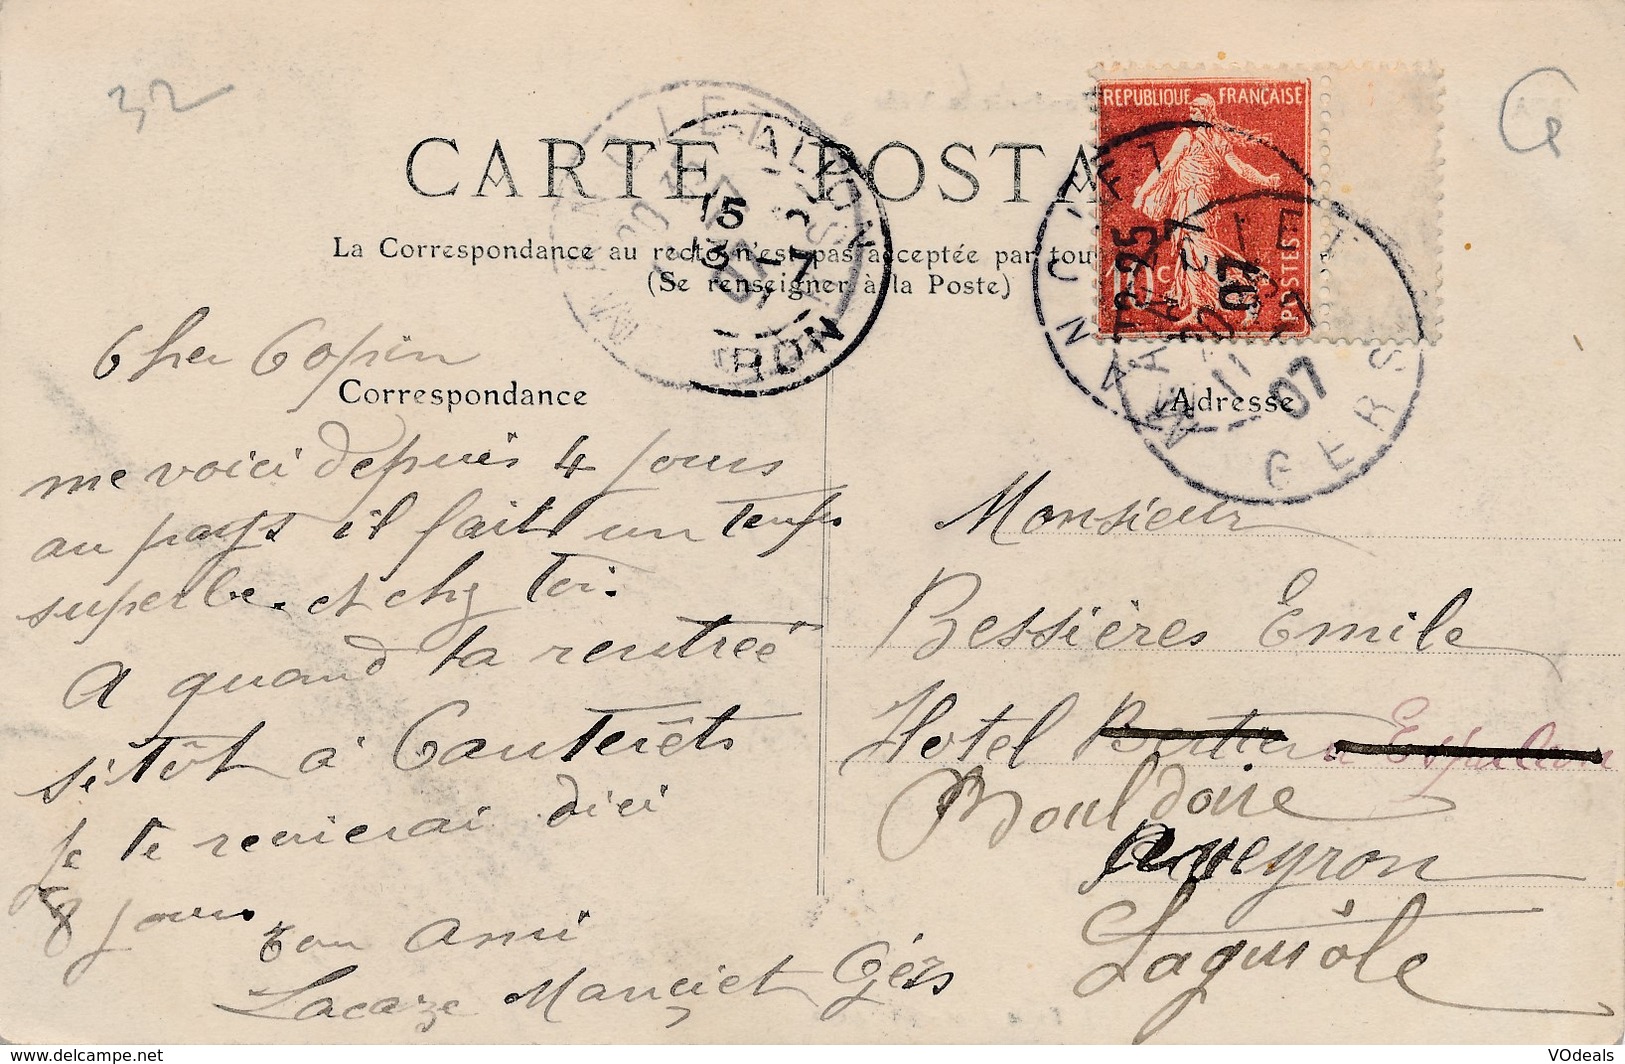 32
CARTE POSTA
La Correspondance au recto n'est pas acceptée par tou
(Se renseigner à la Poste)
REPUBLIQUE FRANÇAISE
10c
POSTES
15
13-7
07
RON
MANCIET
12-25
11-7
07
GERS
Correspondance
Adresse
Cher Copin
me voici depuis 4 jours
au pays il fait un temps
superbe. et chez toi.
A quand ta rentrée
sitôt à Cauterêts
je te reverai dici
8 jours
ton Ami
Lacaze Manciet Gérs
Monsieur
Bessières Emile
Hotel Bertier a Espalion
Bouldoire
Aveyron
Laguiôle
www.delcampe.net
VOdeals